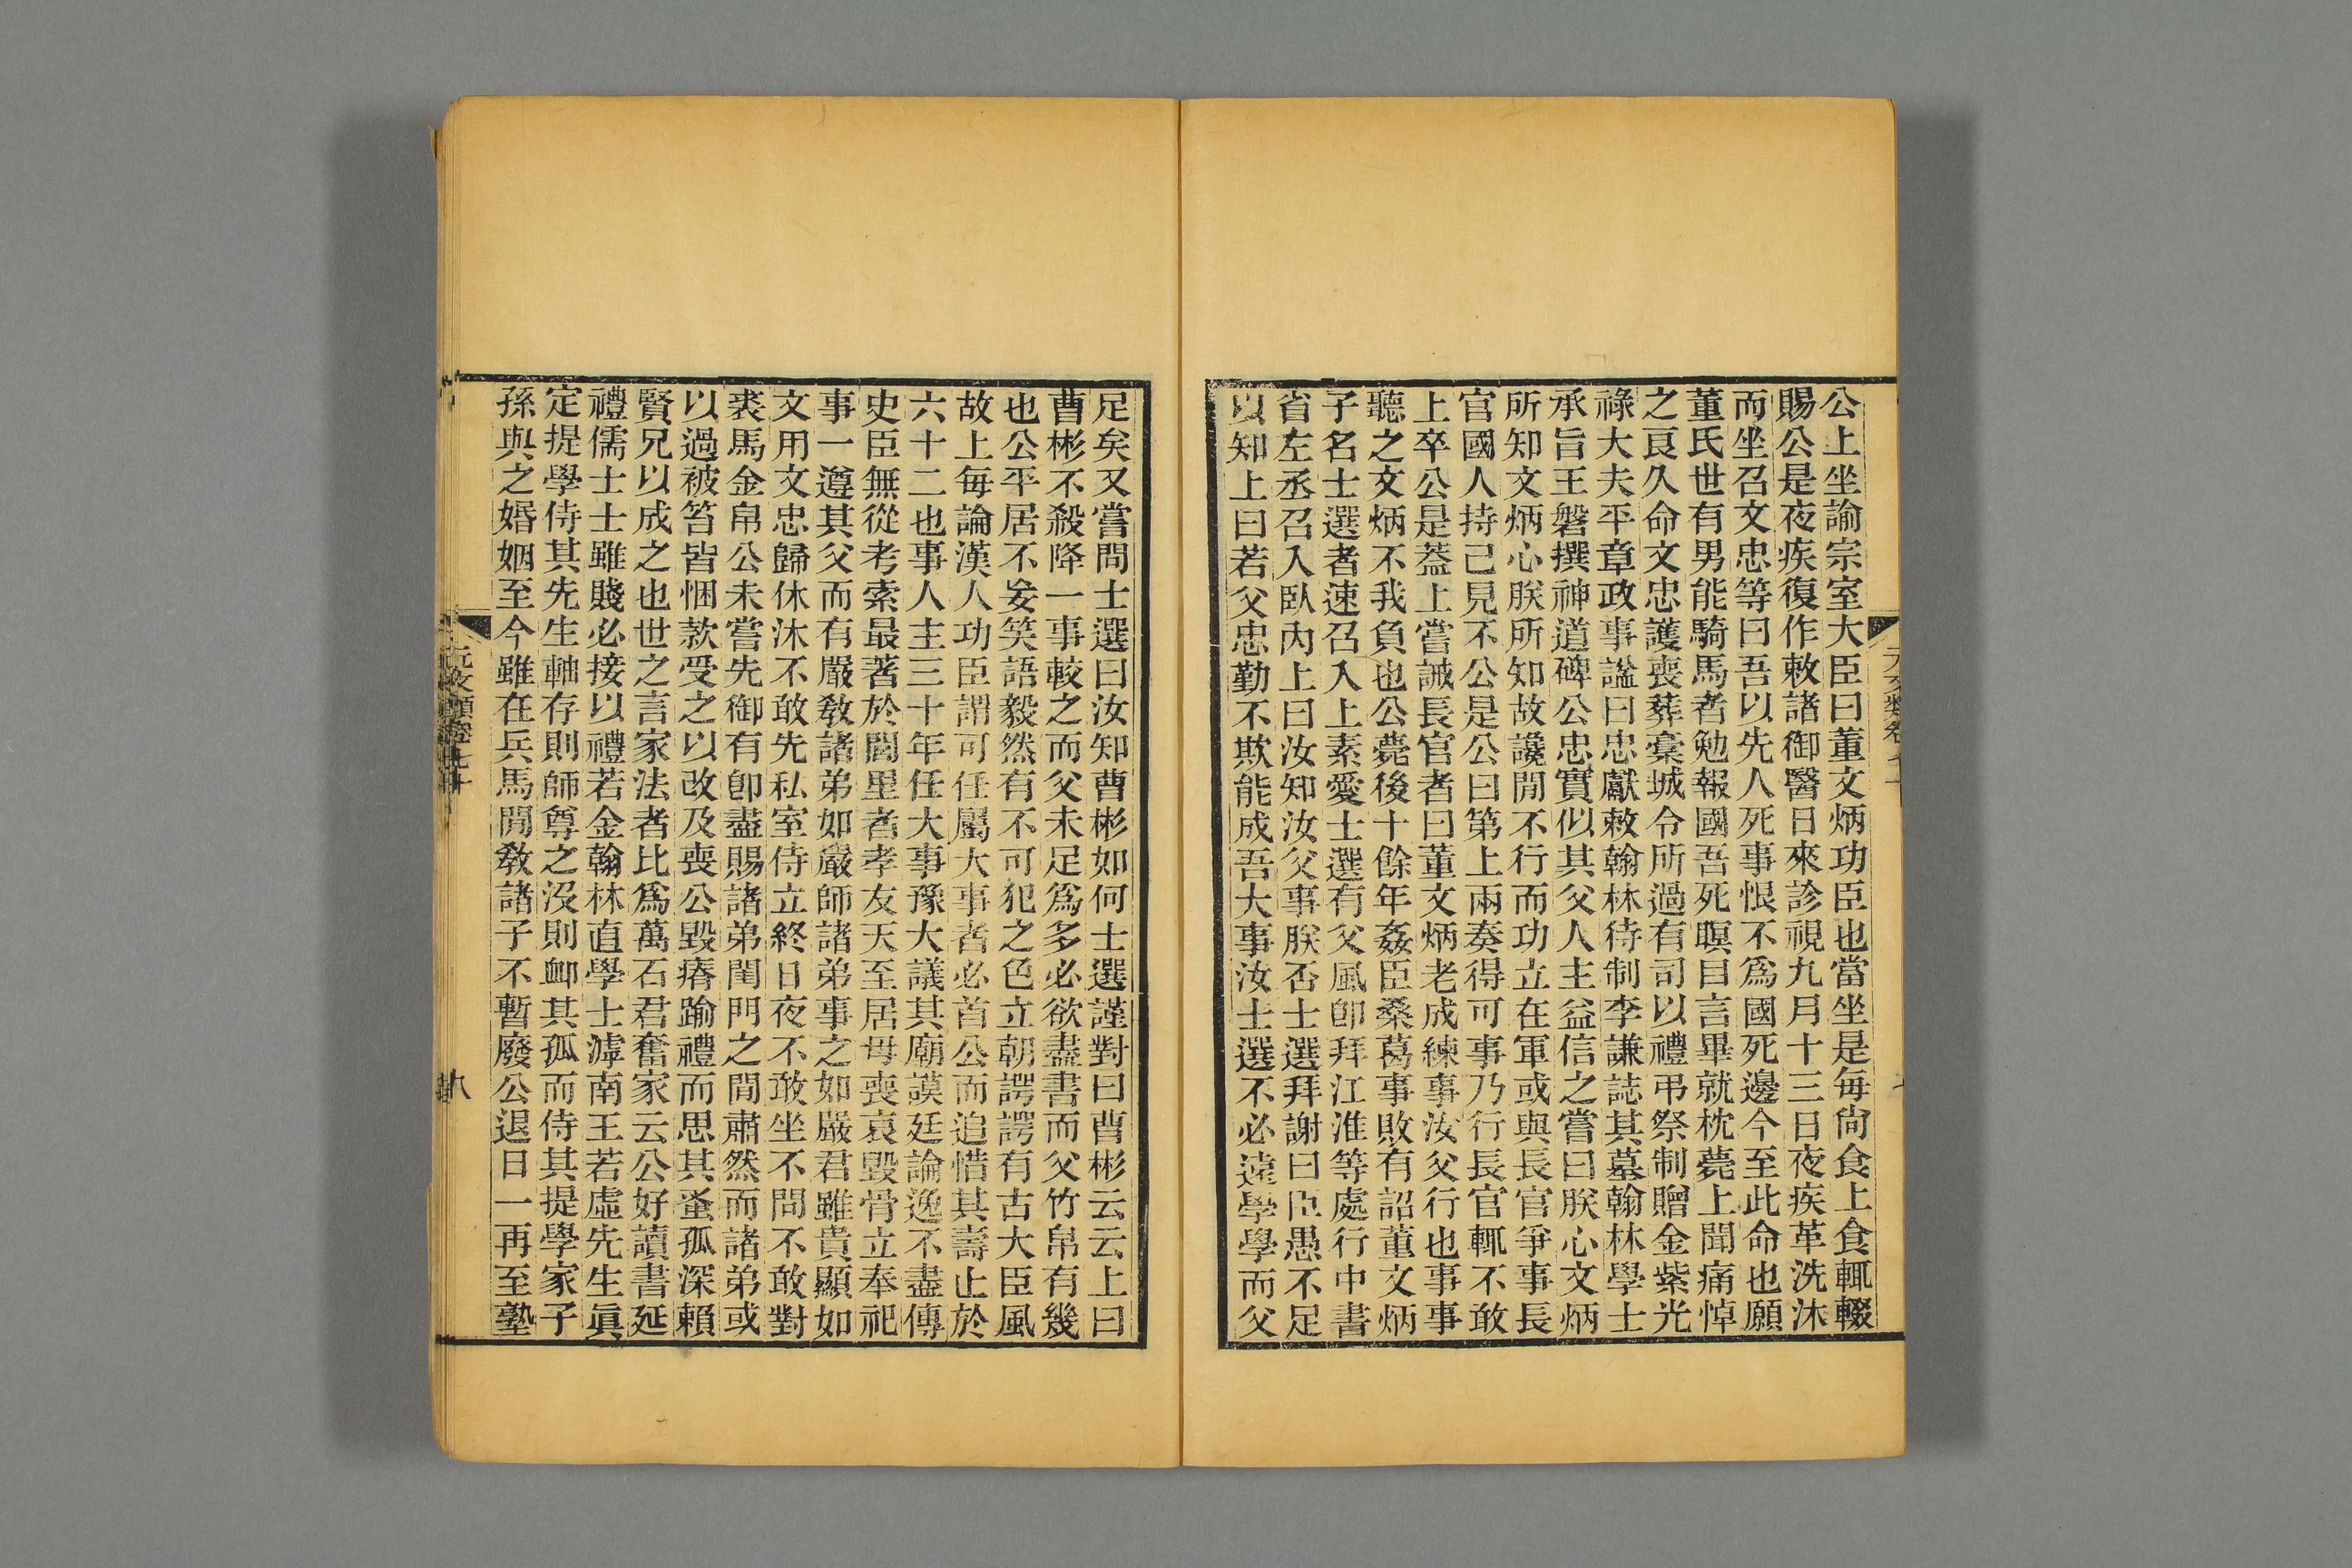 公上坐諭宗室大臣曰董文炳功臣也當坐是每尙食上食輒輟
賜公是夜疾復作敕諸御醫日來診視九月十三日夜疾革洗沐
而坐召文忠等曰吾以先人死事恨不爲國死邊今至此命也願
董氏世有男能騎馬者勉報國吾死瞑目言畢就枕薨上聞痛悼
之良久命文忠護喪葬槀城令所過有司以禮弔祭制贈金紫光
祿大夫平章政事諡曰忠獻敕翰林待制李謙誌其墓翰林學士
承旨王磐撰神道碑公忠實似其父人主益信之嘗曰朕心文炳
所知文炳心朕所知故讒閒不行而功立在軍或與長官爭事長
官國人持己見不公是公曰第上兩奏得可事乃行長官輒不敢
上卒公是葢上嘗誡長官者曰董文炳老成練事汝父行也事事
聽之文炳不我負也公薨後十餘年姦臣桑葛事敗有詔董文炳
子名士選者速召入上素愛士選有父風卽拜江淮等處行中書
省左丞召入臥內上曰汝知汝父事朕否士選拜謝曰臣愚不足
以知上曰若父忠勤不欺能成吾大事汝士選不必遠學學而父
足矣又嘗問士選曰汝知曹彬如何士選謹對曰曹彬云云上曰
曹彬不殺降一事較之而父未足爲多必欲盡書而父竹帛有幾
也公平居不妄笑語毅然有不可犯之色立朝諤諤有古大臣風
故上每論漢人功臣謂可任屬大事者必首公而追惜其壽止於
六十二也事人主三十年任大事豫大議其廟謨廷論逸不盡傳
史臣無從考索最著於閭里者孝友天至居母喪哀毀骨立奉祀
事一遵其父而有嚴敎諸弟如嚴師諸弟事之如嚴君雖貴顯如
文用文忠歸休沐不敢先私室侍立終日夜不敢坐不問不敢對
裘馬金帛公未嘗先御有卽盡賜諸弟閨門之閒肅然而諸弟或
以過被笞皆悃款受之以改及喪公毀瘠踰禮而思其蚤孤深賴
賢兄以成之也世之言家法者比爲萬石君奮家云公好讀書延
禮儒士士雖賤必接以禮若金翰林直學士滹南王若虛先生眞
定提學侍其先生軸存則師尊之沒則卹其孤而侍其提學家子
孫與之婚姻至今雖在兵馬閒敎諸子不暫廢公退日一再至塾
元文類卷七十
八